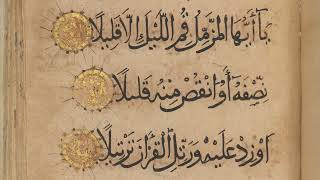 يَا أَيُّهَا الْمُزَّمِّلُ قُمِ اللَّيْلَ إِلَّا قَلِيلًا
نِصْفَهُ أَوِ انْقُصْ مِنْهُ قَلِيلًا
أَوْ زِدْ عَلَيْهِ وَرَتِّلِ الْقُرْآنَ تَرْتِيلًا